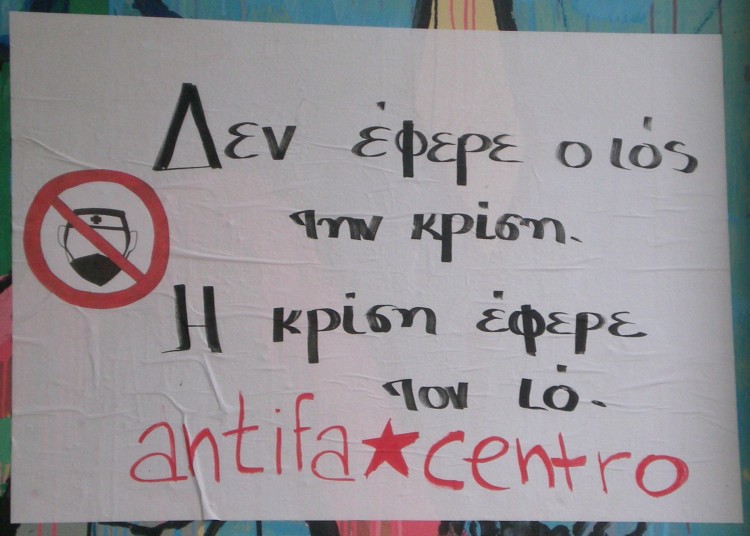 Δεν έφερε ο ιός
την κρίση.
Η κρίση έφερε
τον ιό.
antifa★centro